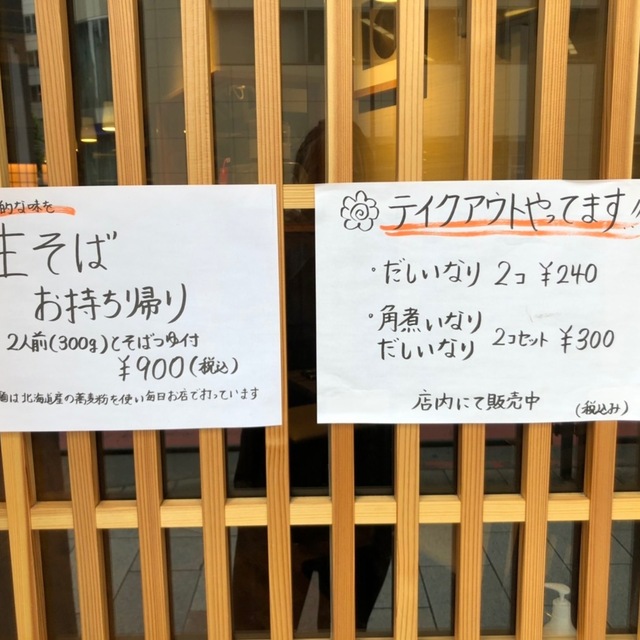 的な味を
生そば
お持ち帰り
2人前(300g)とそばつゆ付
¥900(税込)
麺は北海道産の蕎麦粉を使い毎日お店で打っています
テイクアウトやってます!!
・だしいなり 2コ ¥240
・角煮いなり
だしいなり 2コセット ¥300
店内にて販売中
(税込み)